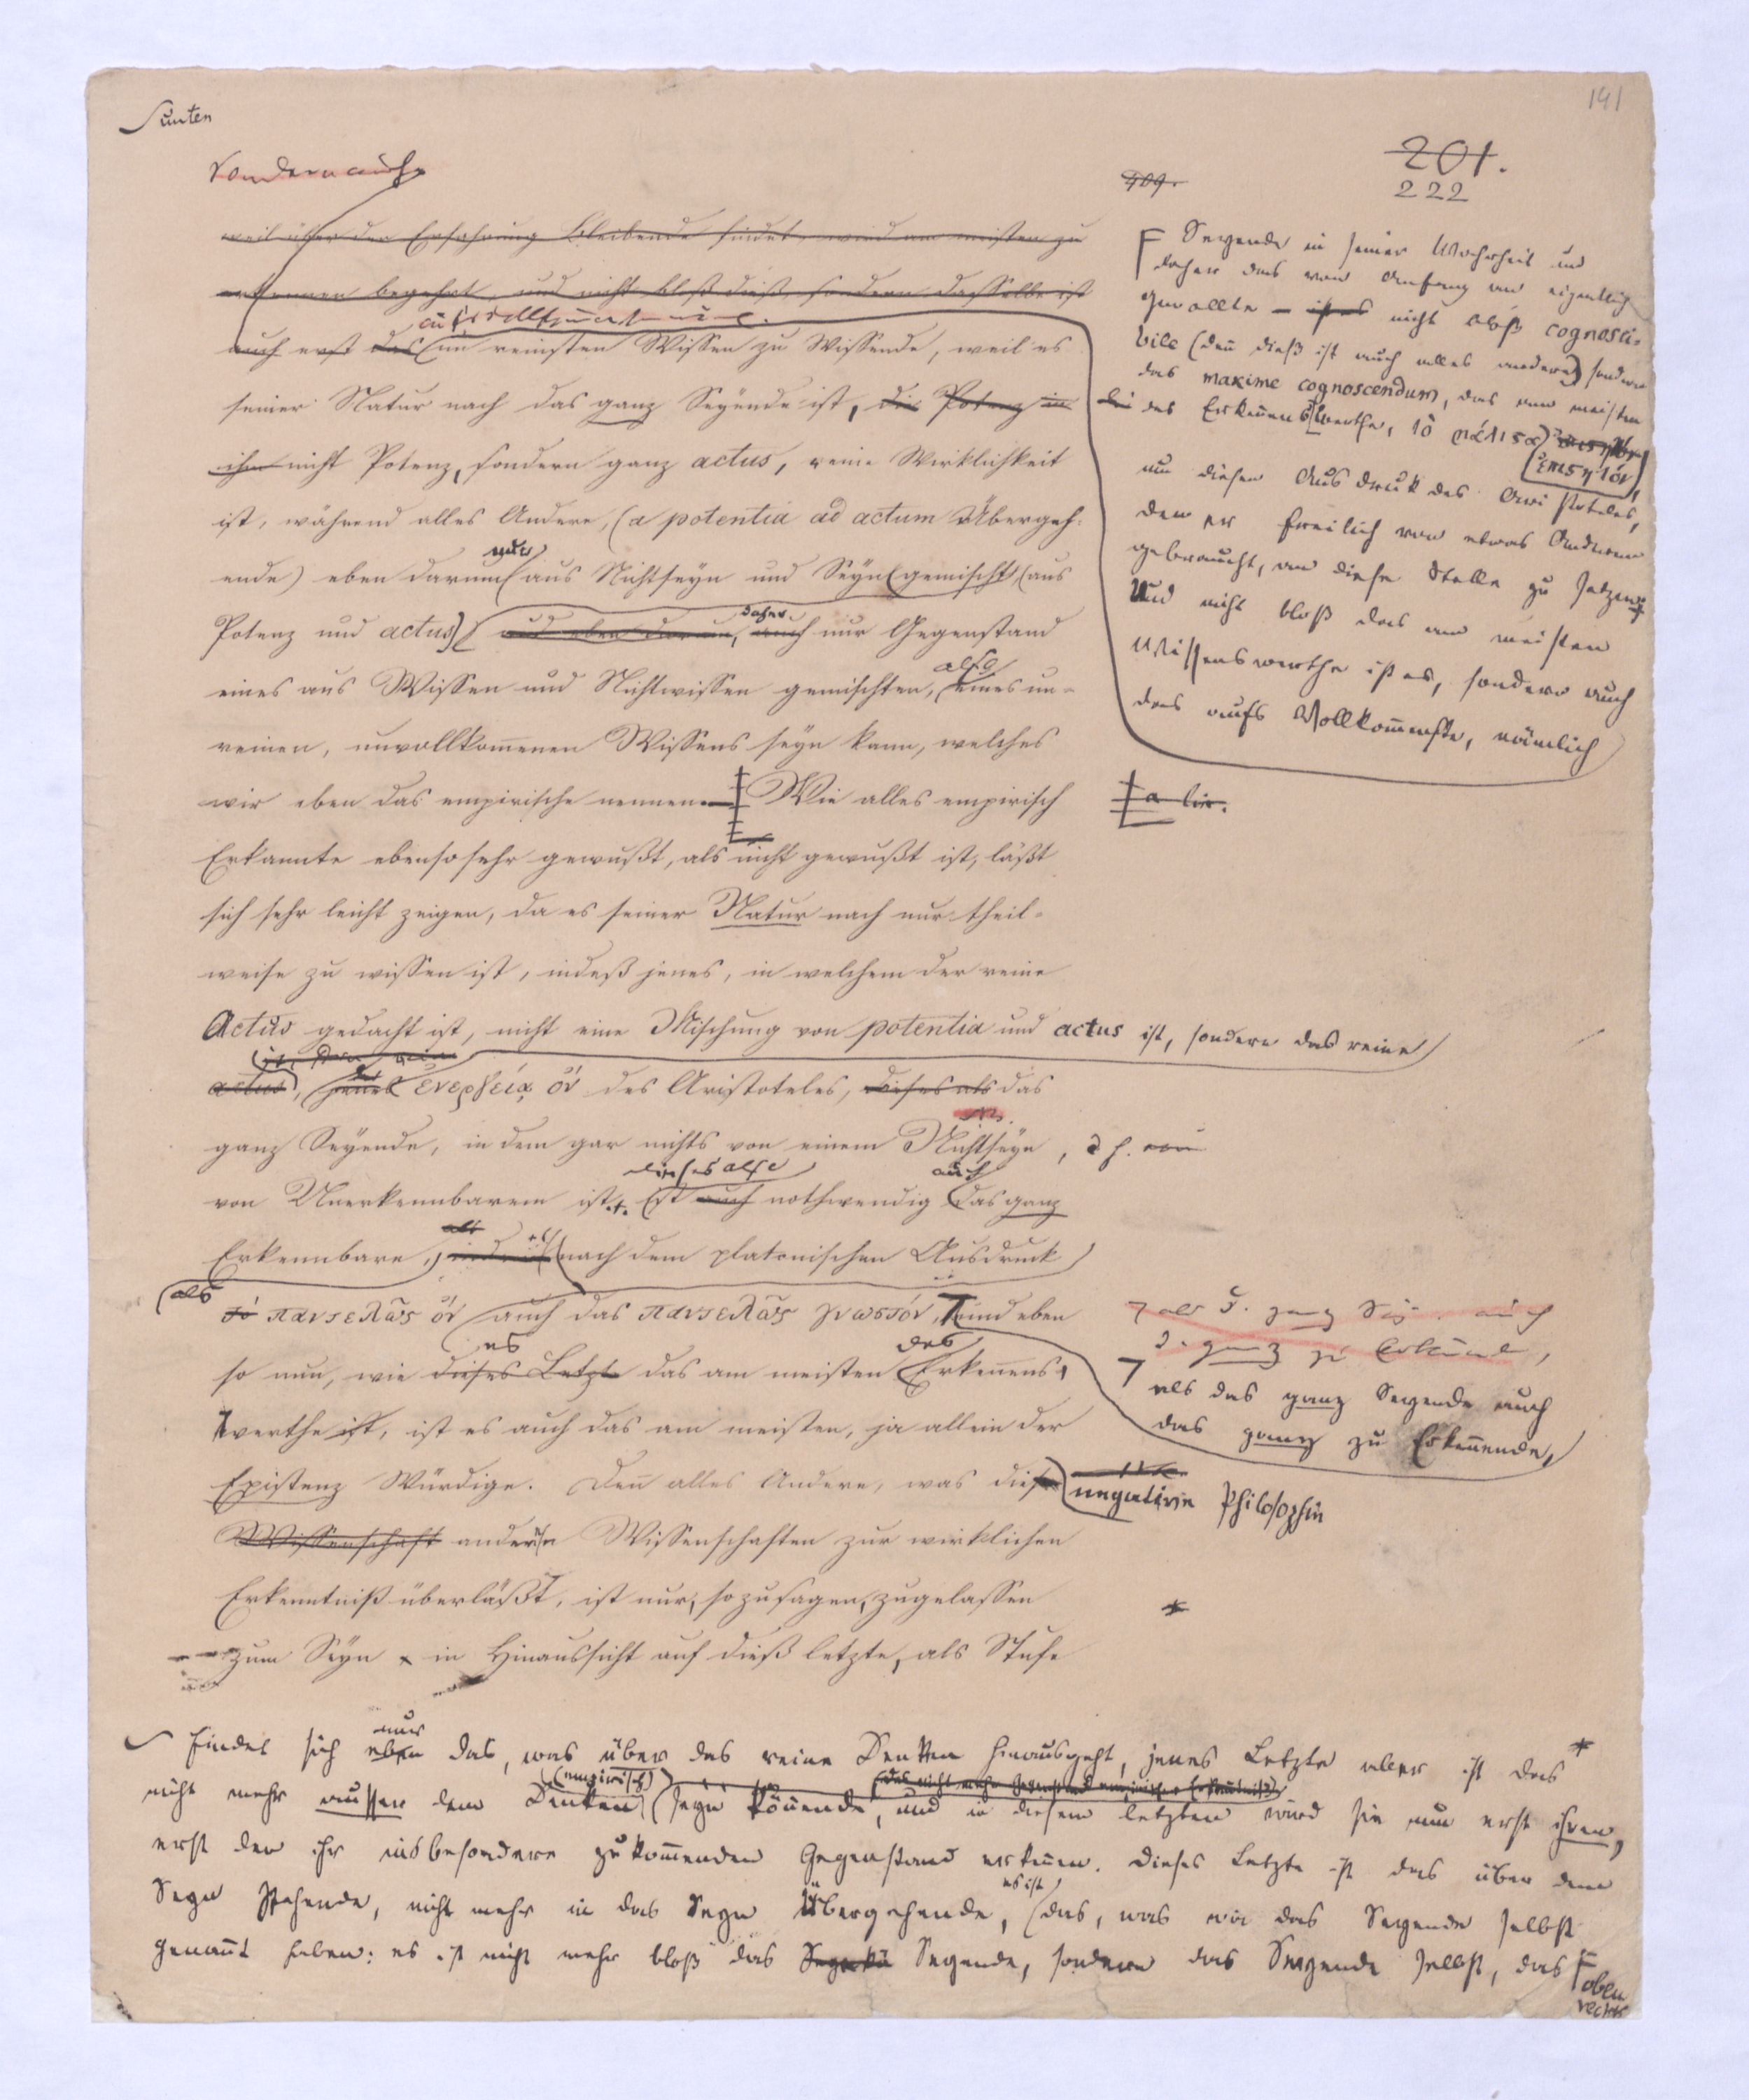 unten
141
sondern auch
409.
201.
222
weil über der Erfahrung bleibende findet, wird am meisten zu
erkennen begehrt, und nicht bloß dieß, sondern dasselbe ist
auch erst das im reinsten Wissen zu Wissende, weil es
seiner Natur nach das ganz Seyende ist, die Potenz in
ihm nicht Potenz, sondern ganz actus, reine Wirklichkeit
ist, während alles Andere, (a potentia ad actum Übergeh-
ende) eben darum aus Nichtseyn und Seyn gemischt (aus
Potenz und actus) und eben darum, auch nur Gegenstand
daher
eines aus Wissen und Nichtwissen gemischten, eines un-
also
reinen, unvollkom̄enen Wissens seyn kann, welches
wir eben das empirische nennen. — Wie alles empirisch
Erkannte ebensosehr gewußt, als nicht gewußt ist, läßt
sich sehr leicht zeigen, da es seiner Natur nach nur theil-
weise zu wissen ist, indeß jenes, in welchem der reine
Actus gedacht ist, nicht eine Mischung von potentia und actus ist, sondern das reine
actus, jenes ἐνεργείᾳ ὄν des Aristoteles, dieses als das
ganz Seyende, in dem gar nichts von einem Nichtseyn, d. h.
von Unerkennbarem ist. Ist auch nothwendig das ganz
dieses also
auch
Erkennbare, nach dem platonischen Ausdruck
als
τὸ παντελῶς ὄν auch das παντελῶς γνωστόν, und eben
so nun, wie dieses Letzte das am meisten Erken̄ens
es
des
werthe ist, ist es auch das am meisten, ja allein der
Existenz Würdige. Den̄ alles Andere, was diese
negative Philosophie
Wissenschaft andern Wissenschaften zur wirklichen
Erkenntniß überläßt, ist nur, sozusagen, zugelassen
zum Seyn in Hinaussicht auf dieß letzte, als Stufe
Seyende in seiner Wahrheit und
daher das von Anfang an eigentlich
gewollte — ist es nicht bloß cognosci-
bile (den̄ dieß ist auch alles andere) sondern
das maxime cognoscendum, das am meisten
des Erken̄ens werthe, τὸ μάλιστα
ἐπιστητόν,
um diesen Ausdruk des Aristoteles,
den er freilich von etwas Anderem
gebraucht, an diese Stelle zu setzen
Und nicht bloß das am meisten
Wissenswerthe ist es, sondern auch
das aufs Vollkom̄enste, nämlich
a lin.
als d. ganz Sey. auch
d. ganz zu Erken̄ende,
als das ganz Seyende auch
das ganz zu Erken̄ende,
findet sich eben das, was über das reine Denken hinausgeht, jenes Letzte aber ist das
nur
nicht mehr ausser dem Denken (seyn Kön̄ende, und in diesem letzten wird sie nun erst ihren,
(empirisch)
erst den ihr insbesondere zukom̄enden Gegenstand erken̄en. Dieses Letzte ist das über dem
Seyn Stehende, nicht mehr in das Seyn Übergehende, das, was wir das Seyende selbst
es ist
genan̄t haben: es ist nicht mehr bloß das Seyende, sondern das Seyende selbst, das
oben
rechts